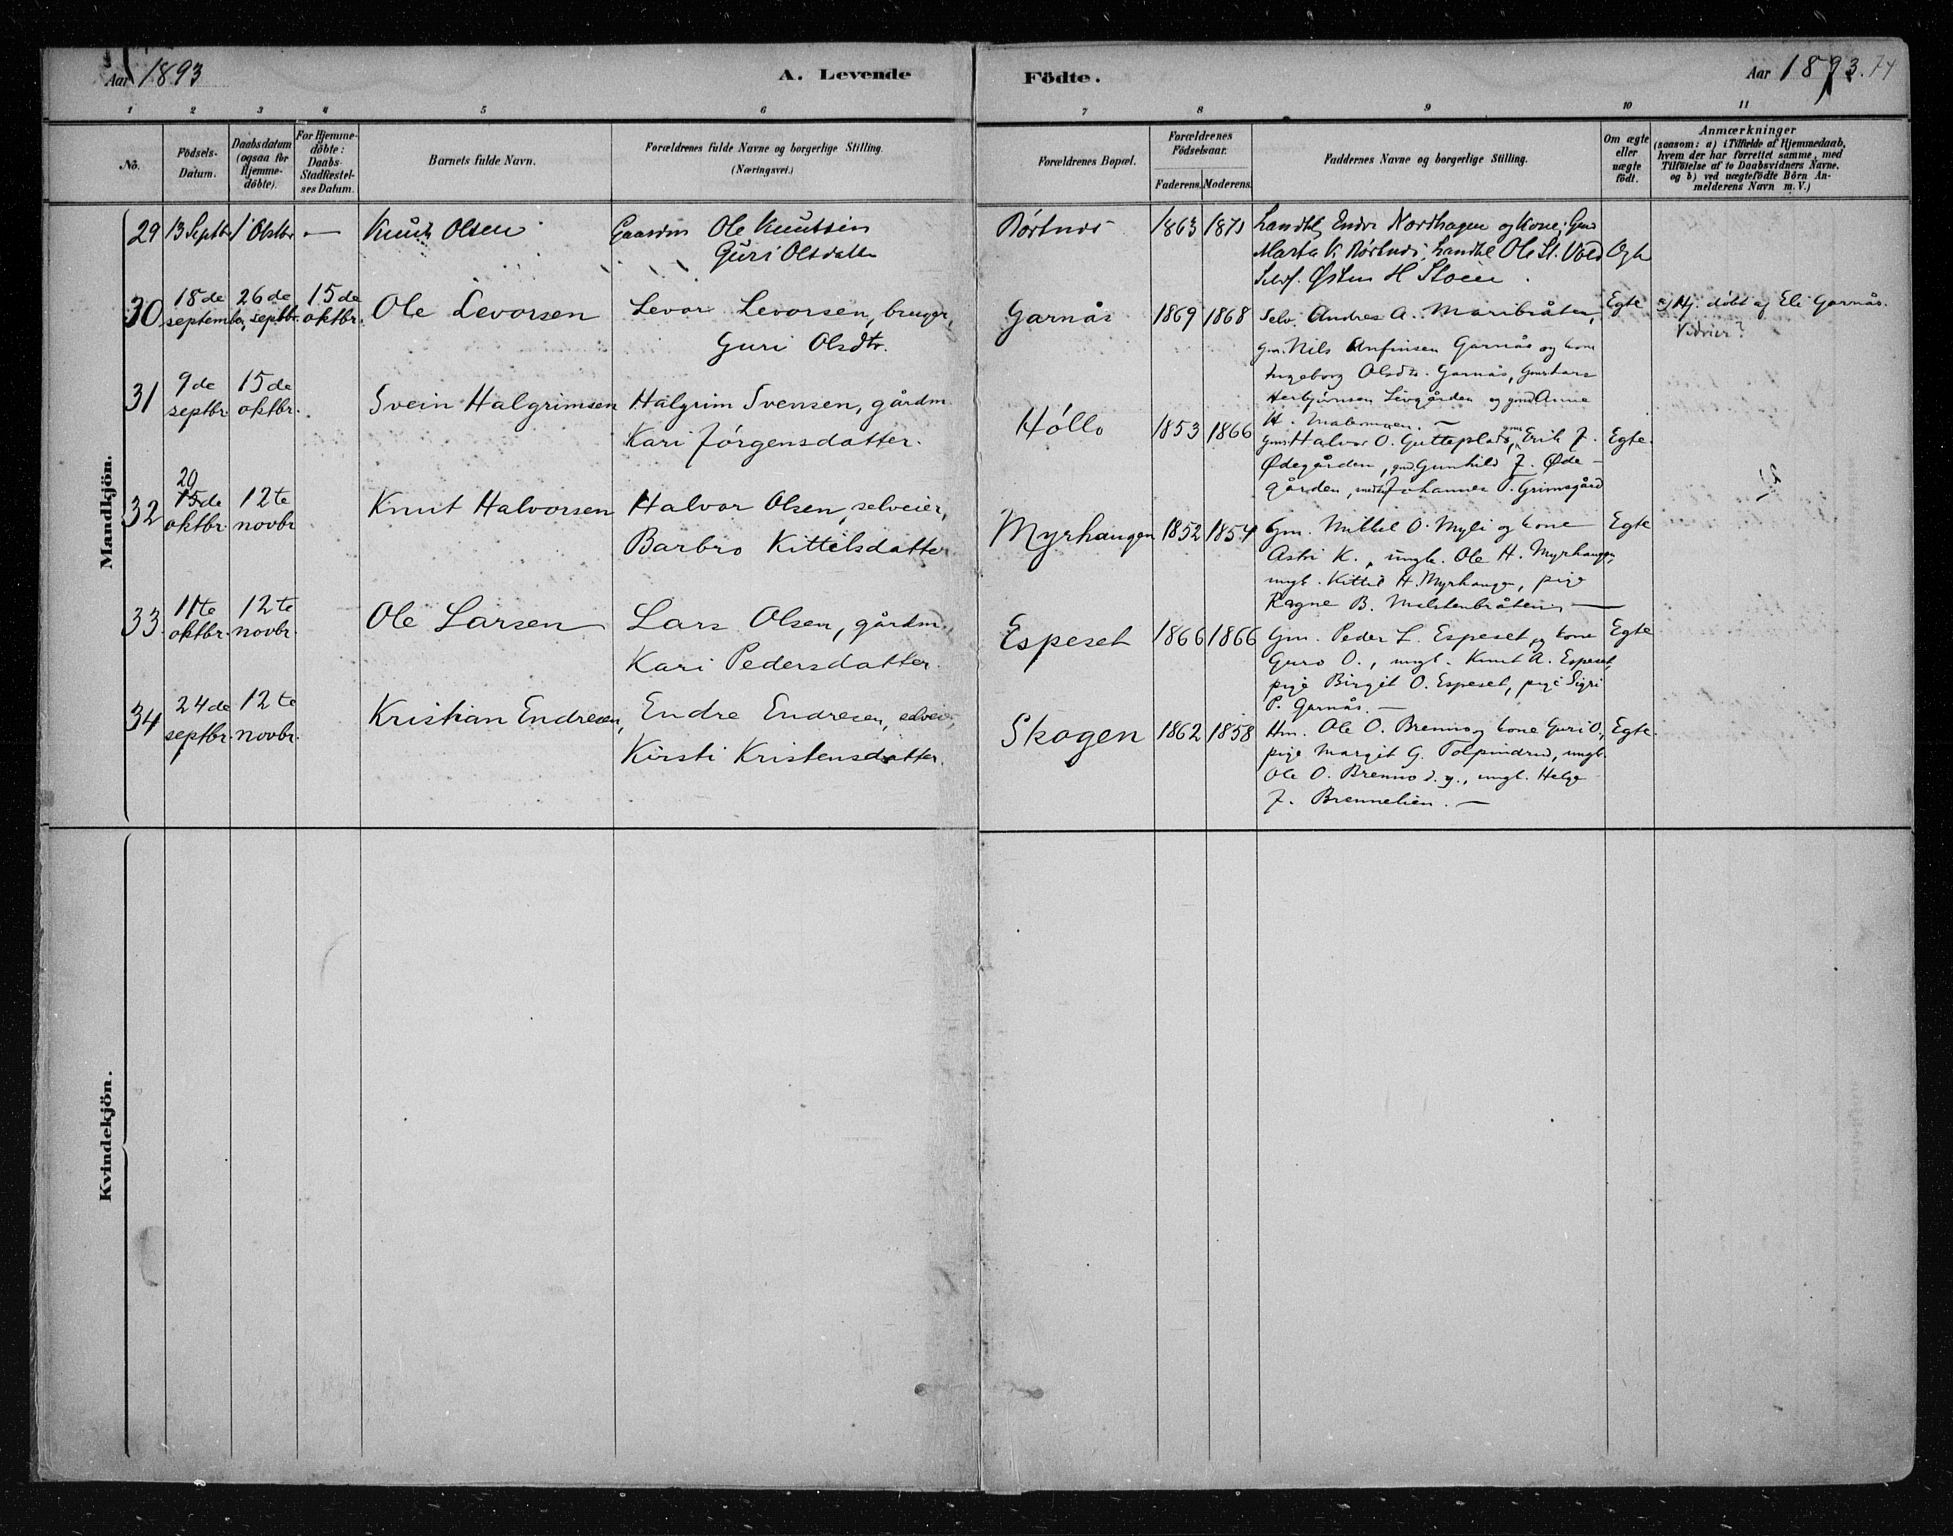 Aar 1893
A. Levende Födte.
Aar 1893. 74
1 2 3 4 5 6 7 8 9 10 11
No.
Födsels-Datum.
Daabsdatum (ogsaa for Hjemme-döbte).
For Hjemme-döbte: Daabs-Stadfæstel-ses Datum.
Barnets fulde Navn.
Forældrenes fulde Navne og borgerlige Stilling.
(Næringsvei.)
Forældrenes Bopæl.
Forældrenes Födselsaar.
Faderens. Moderens.
Faddernes Navne og borgerlige Stilling.
Om ægte eller uægte födt.
Anmærkninger
(saasom: a) i Tilfælde af Hjemmedaab, hvem der har forrettet samme, med Tilföielse af to Daabsvidners Navne, og b) ved uægtefödte Börn An-melderens Navn m. V.)
Mandkjön.
29 13 Septbr 1 Oktbr — Knut Olsen Gaardm Ole Knutsen Rørtnes 1863 1871 Landhl Endre Nordhagen og Kone; Gmd
Guri Olsdatter Marta K Rørtnes, Landhl Ole St. Vold
Selvf. Østen H Stoen.
30 18de septembr. 26de septbr. 15de oktbr. Ole Levorsen Levor Levorsen, bruger, Garnås 1869 1868 Selv. Andres A. Maribråten, Egte a) Hj. døbt af Eli Garnås.
Guri Olsdtr. gm. Nils Anfinsen Garnås og kone
Ingeborg Olsdtr. Garnås,
Herbjørnsen Livgården og Anne
H.
31 9de septbr. 15de oktbr. Svein Halgrimsen Halgrim Svensen, gårdm. Hóllo 1853 1866 gm. Halvor O. Gutteplads, Erik J. Egte.
Kari Jørgensdatter. Ødegården, Gunhild J. Øde-
gården, Johannes O. Grimsgård
32 20 15de oktbr. 12te novbr. Knut Halvorsen Halvor Olsen, selveier, Myrhaugen 1852 1854 Gm. Mikkel O. Myli og kone Egte
Barbro Kittilsdatter Astri K., ungk. Ole H. Myrhaugen,
ungk. Kittil H. Myrhaugen, pige
Ragne B.
33. 11te oktbr. 12te novbr. Ole Larsen Lars Olsen, gårdm., Espeset 1866 1866 Gm. Peder L. Espeset og kone Egte
Kari Pedersdatter. Guro O., ungk. Knut A. Espeset,
pige Birgit O. Espeset, pige Sigri
P. Garnås. —
34 24de septbr. 12te novbr. Kristian Endresen, Endre Endresen, selveier, Skogen 1862 1858 Hm. Ole O. Brenno og kone Guri O., Egte.
Kirsti Kristensdatter. pige Margit G. Tolpindrud, ungk.
Ole O. Brenno d. y., ungk. Helge
J. Brennelien. —
Kvindekjön.